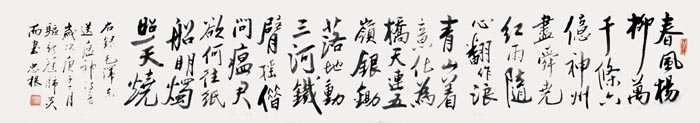 春風楊
柳萬
千條六
億神州
盡舜堯
紅雨隨
心翻作浪
青山着
意化為
橋天連五
嶺銀鋤
落地動
三河鐵
臂搖借
問瘟君
欲何往紙
船明燭
照天燒
毛澤東
送瘟神詩
歲次庚子二月
忠根